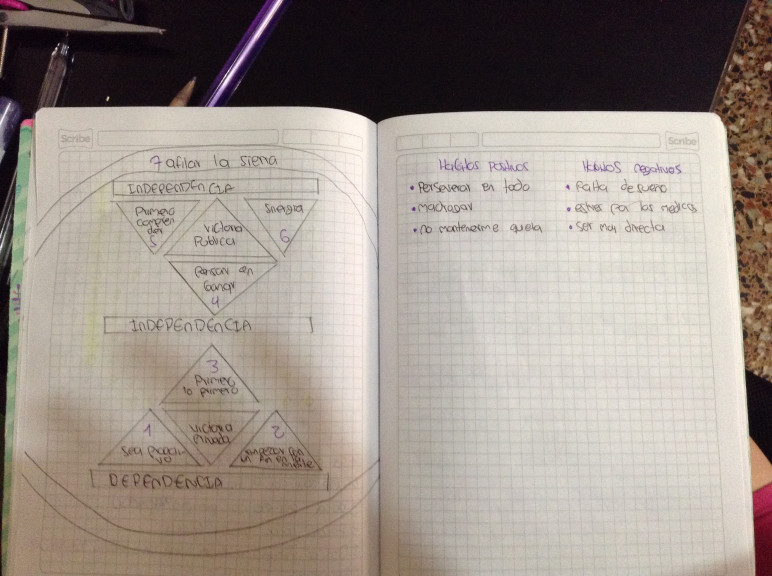 Scribe
7 afilar la sierra
INDEPENDENCIA
Primero
compren
der
5
Victoria
Publica
Sinergia
6
Pensar en
Ganar
4
INDEPENDENCIA
3
Primero
lo primero
1
Sea Proacti
vo
Victoria
Privada
2
empezar con
un fin en la
mente
DEPENDENCIA
Scribe
Habitos Positivos
• Perseverar en todo
• machacar
• no mantenerme quieta
Habitos negativos
• Falta de sueño
• estres por las medicas
• Ser muy directa